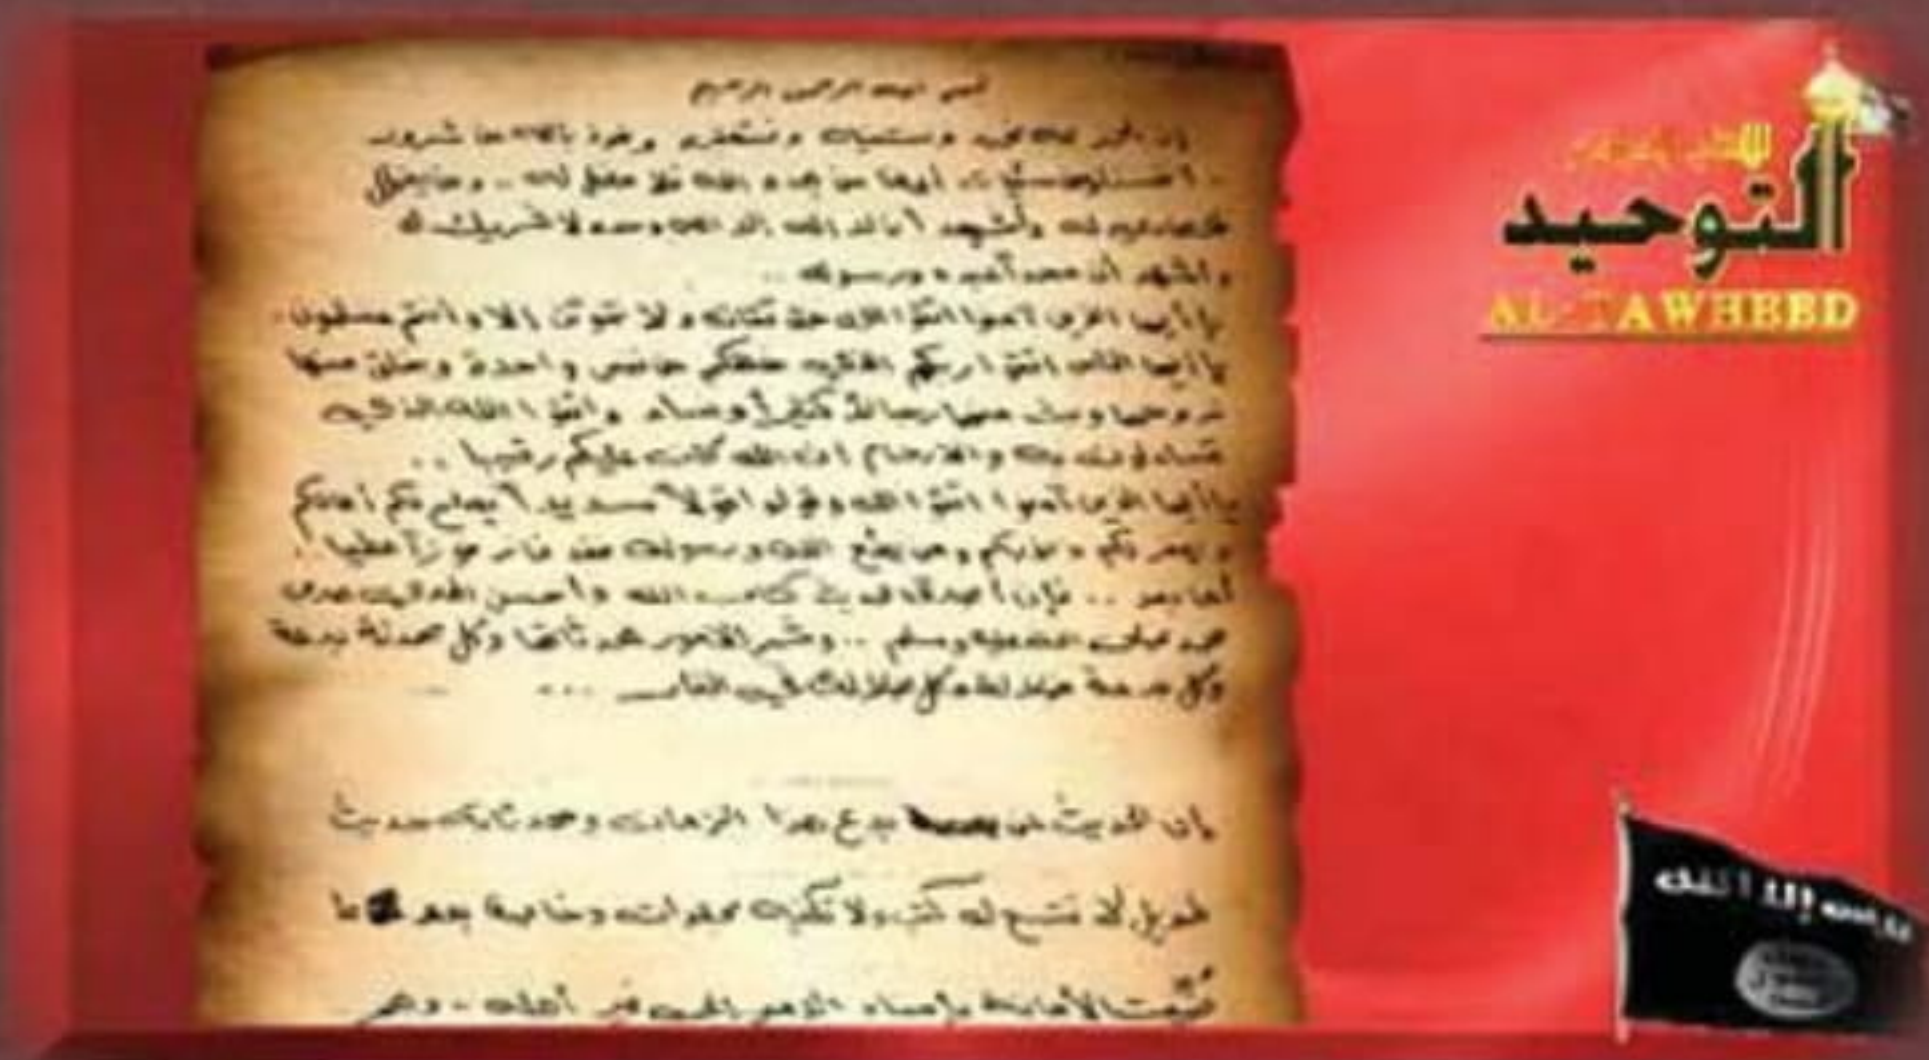 بسم الله الرحمن الرحيم
إن الحمد لله نحمده ونستعينه ونستغفره ونعوذ بالله من شرور
أنفسنا ومن سيئات أعمالنا من يهده الله فلا مضل له .. ومن يضلل
فلا هادي له وأشهد أن لا إله إلا الله وحده لا شريك له
وأشهد أن محمداً عبده ورسوله ..
يا أيها الذين آمنوا اتقوا الله حق تقاته ولا تموتن إلا وأنتم مسلمون .
يا أيها الناس اتقوا ربكم الذي خلقكم من نفس واحدة وخلق منها
زوجها وبث منهما رجالاً كثيراً ونساء واتقوا الله الذي
تساءلون به والأرحام إن الله كان عليكم رقيبا ..
يا أيها الذين آمنوا اتقوا الله وقولوا قولاً سديداً يصلح لكم أعمالكم
ويغفر لكم ذنوبكم ومن يطع الله ورسوله فقد فاز فوزاً عظيما .
أما بعد .. فإن أصدق الحديث كتاب الله وأحسن الهدي هدي
محمد صلى الله عليه وسلم .. وشر الأمور محدثاتها وكل محدثة بدعة
وكل بدعة ضلالة وكل ضلالة في النار ...
إن الحديث عن بدع هذا الزمان ومحدثاته حديث
طويل لا تتسع له كتب ولا تكفيه مجلدات وخاصة بعد ما
ضُيّعت الأمانة بإسناد الأمر إلى غير أهله - وهم
التوحيد
AL-TAWHEED
لا إله إلا الله
الله
رسول
محمد